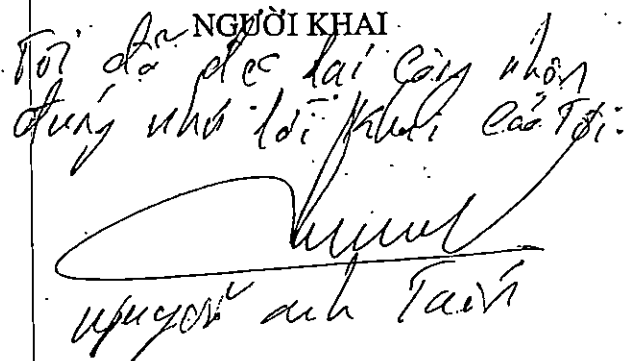 NGƯỜI KHAI
Tôi đã đọc lại công nhận
đúng như lời khai của Tôi.
Nguyễn anh